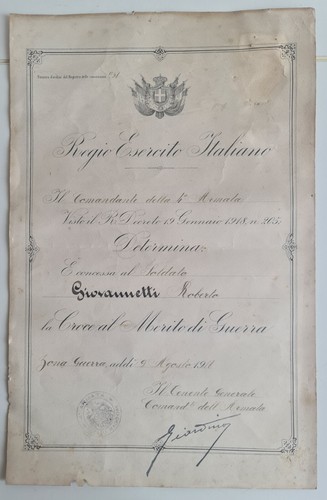 Regio Esercito Italiano
Il Comandante della 4ª Armata
Visto il R. Decreto 19 Gennaio 1918, n. 205
Determina:
È concessa al Soldato
Giovannetti Roberto
la Croce al Merito di Guerra
Zona Guerra, addì 9 Agosto 191
Il Tenente Generale
Comandᵗᵉ dell'Armata
Giardino